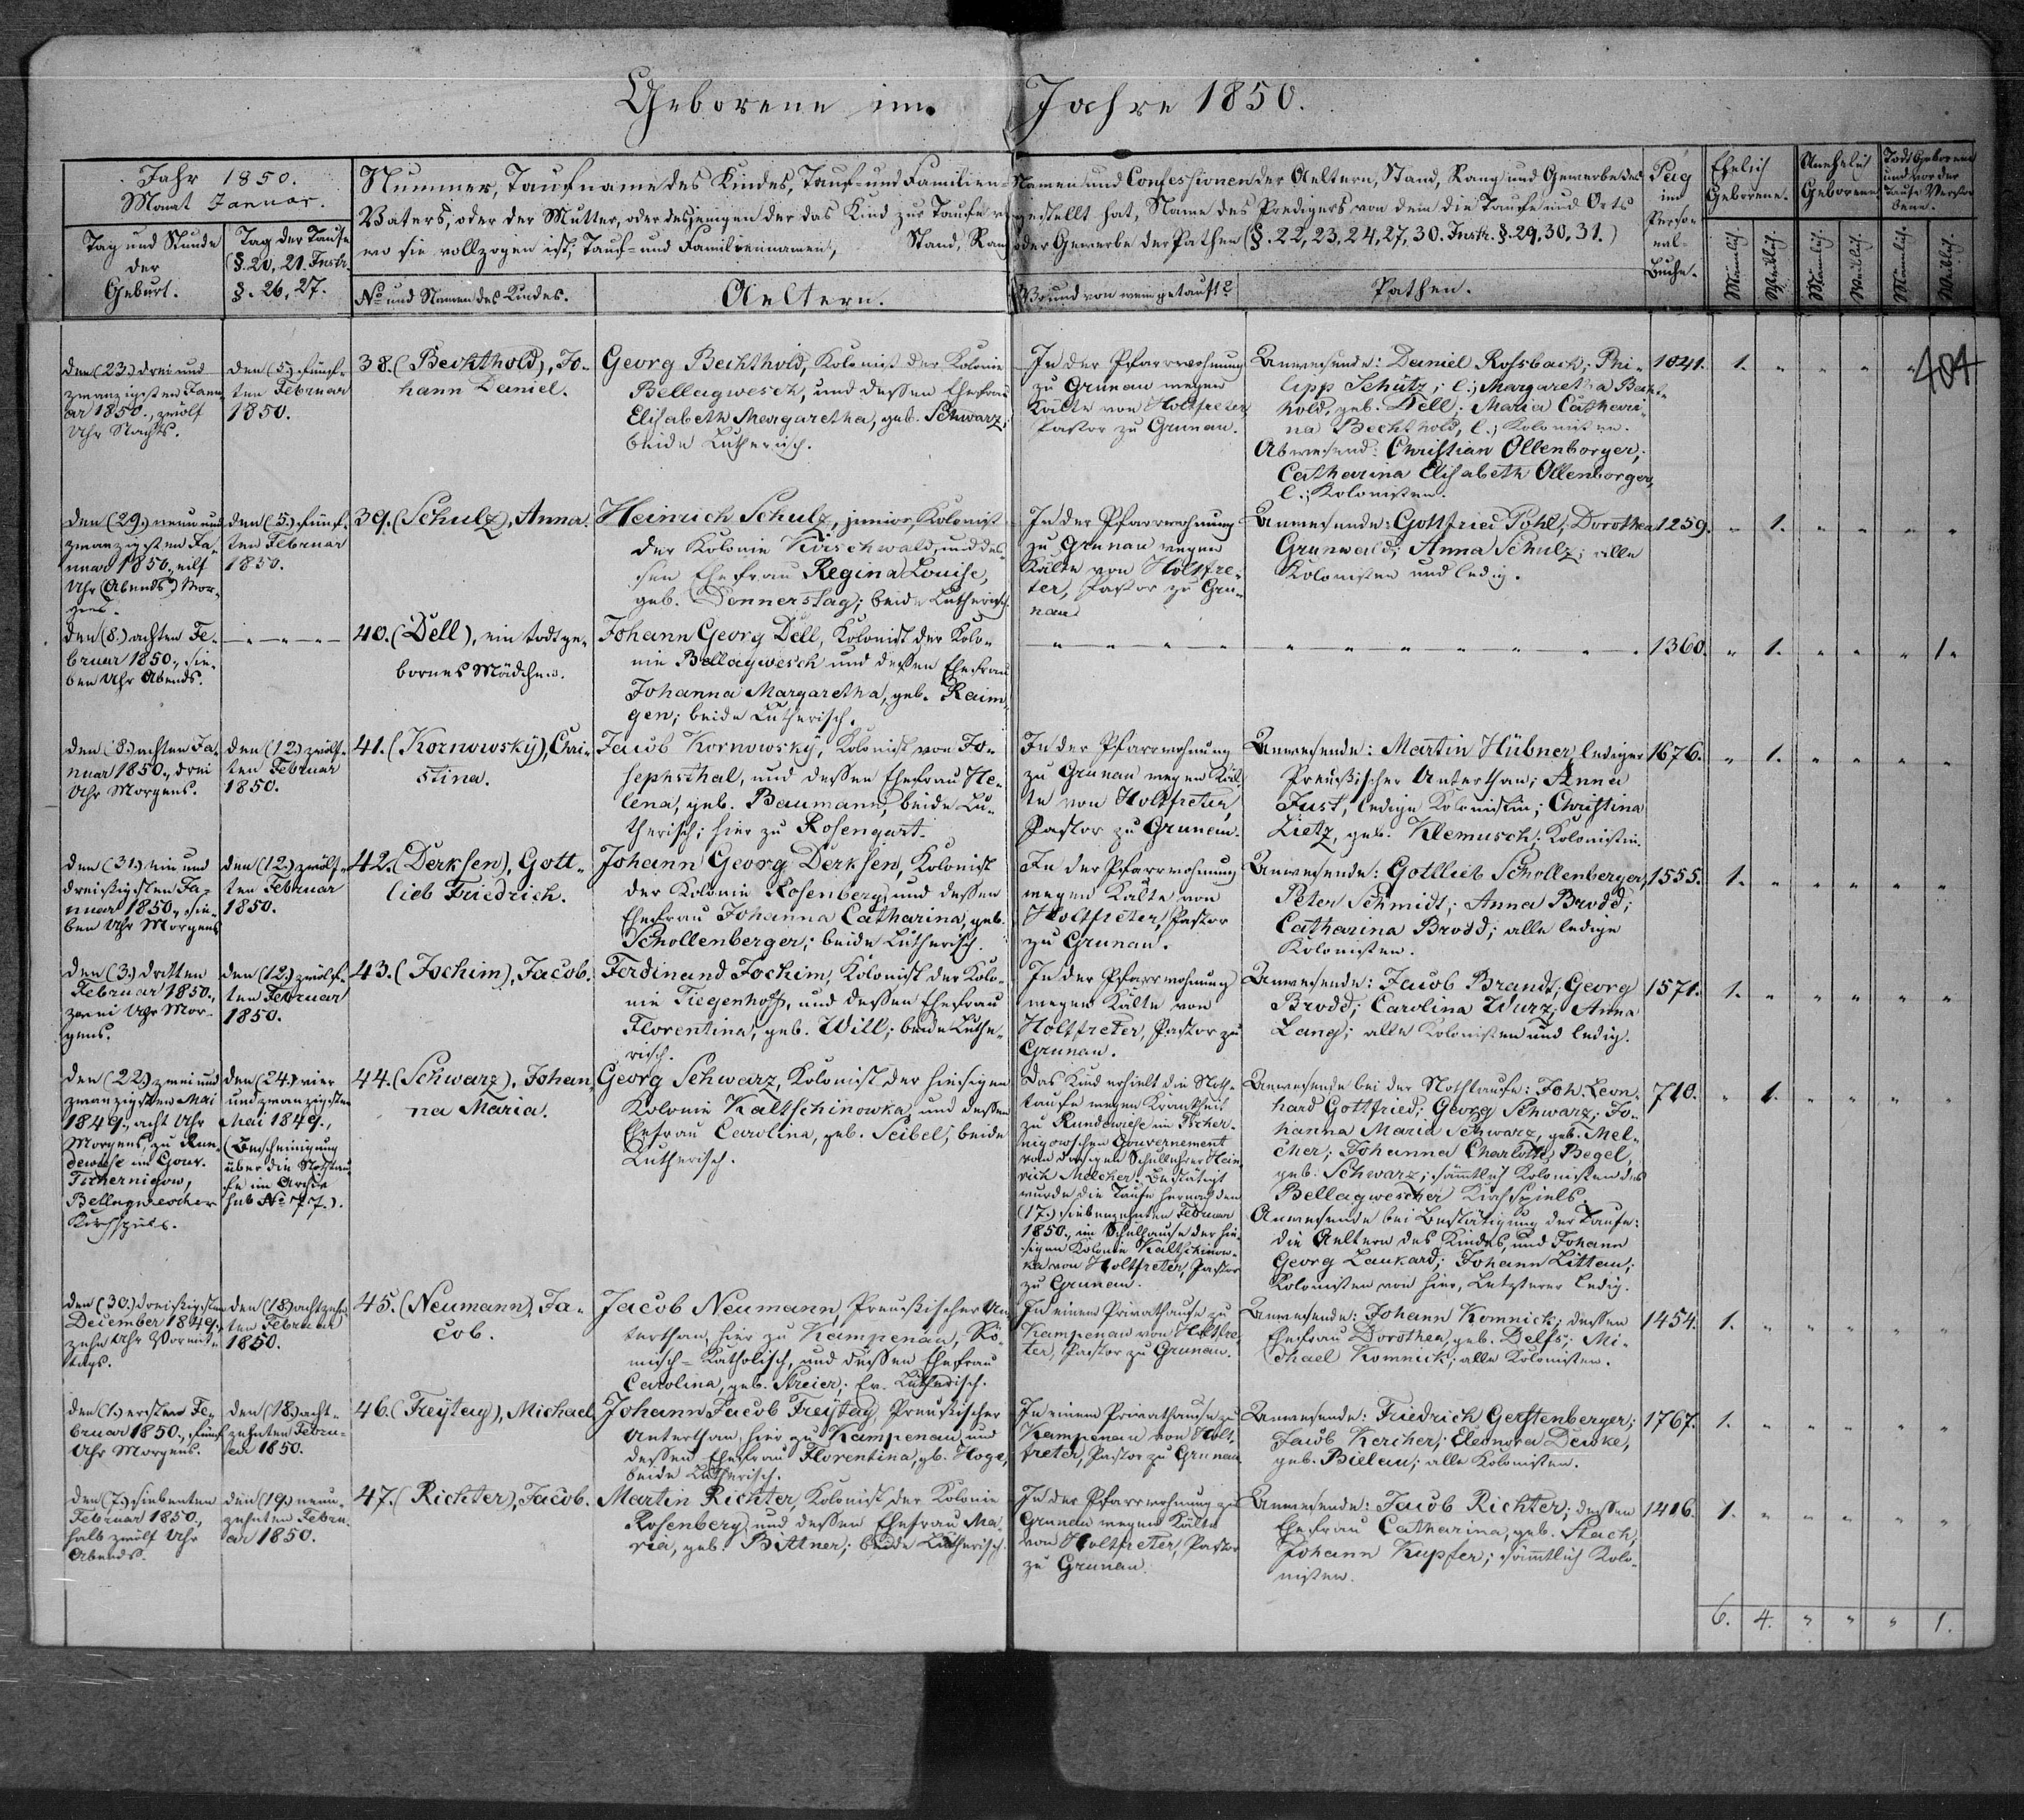 Geborene im Jahre 1850.
Jahr 1850.
Monat Januar.
Tag und Stunde
der
Geburt.
Tag der Taufe
(§. 20, 21. Instr.
§. 26, 27.
Nummer, Taufname des Kindes, Tauf- und Familien-Namen und Confessionen der Aeltern, Stand, Rang und Gewerbe des
Vaters, oder der Mutter, oder desjenigen der das Kind zur Taufe vorgestellt hat, Name des Predigers von dem die Taufe und Orts
wo sie vollzogen ist, Tauf- und Familiennamen, Stand, Rang oder Gewerbe der Pathen (§. 22, 23, 24, 27, 30. Instr. §. 29, 30, 31.)
No und Namen des Kindes.
Aeltern.
Wo und von wem getauft?
Pathen.
Pag
im
Perso-
nal-
Buche.
Ehelich
Geborene.
Unehelich
Geborene.
Todt Geborene
und vor der
Taufe Verstor-
bene.
Männlich.
Weiblich.
Männlich.
Weiblich.
Männlich.
Weiblich.
404
den (23.) drei und
zwanzigsten Janu-
ar 1850., zwölf
Uhr Nachts.
den (5.) fünf-
ten Februar
1850.
38. (Bechthold), Jo-
hann Daniel.
Georg Bechthold, Kolonist der Kolonie
Bellagwesch, und dessen Ehefrau
Elisabeth Margaretha, geb. Schwarz,
beide Lutherisch.
In der Pfarrwohnung
zu Grunau wegen
Kälte von Holtfreter,
Pastor zu Grunau.
Anwesende: Daniel Rossbach; Phi-
lipp Schütz; l.; Margaretha Becht-
hold, geb. Dell; Maria Cathari-
na Bechthold, l.; Kolonisten.
Abwesend: Christian Ollenborger;
Catharina Elisabeth Ollenborger,
l.; Kolonisten.
1041. 1. " " " "
den (29.) neun und
zwanzigsten Ja-
nuar 1850., eilf
Uhr (Abends) Mor-
gens.
den (5.) fünf-
ten Februar
1850.
39. (Schulz), Anna.
Heinrich Schulz, junior, Kolonist
der Kolonie Kirschwald, und des-
sen Ehefrau Regina Louise,
geb. Donnerstag; beide Lutherisch.
In der Pfarrwohnung
zu Grunau wegen
Kälte von Holtfre-
ter, Pastor zu Gru-
nau.
Anwesende: Gottfried Pohl; Dorothea
Grunwald; Anna Schulz; alle
Kolonisten und ledig.
1259. " 1. " " " "
den (8.) achten Fe-
bruar 1850., sie-
ben Uhr Abends.
40. (Dell), ein todtge-
bornes Mädchen.
Johann Georg Dell, Kolonist der Kolo-
nie Bellagwesch und dessen Ehefrau
Johanna Margaretha, geb. Raim-
gen; beide Lutherisch.
1360. " 1. " " " 1.
den (8.) achten Ja-
nuar 1850., drei
Uhr Morgens.
den (12.) zwölf-
ten Februar
1850.
41. (Kornowsky), Chri-
stina.
Jacob Kornowsky, Kolonist von Jo-
sephsthal, und dessen Ehefrau He-
lena, geb. Baumann; beide Lu-
therisch; hier zu Rosengart.
In der Pfarrwohnung
zu Grunau wegen Käl-
te von Holtfreter,
Pastor zu Grunau.
Anwesende: Martin Hübner, lediger
Preußischer Unterthan; Anna
Just, ledige Kolonistin; Christina
Zietz, geb. Klemusch; Kolonistin.
1676. " 1. " " " "
den (31.) ein und
dreißigsten Ja-
nuar 1850., sie-
ben Uhr Morgens
den (12.) zwölf-
ten Februar
1850.
42. (Derksen), Gott-
lieb Friedrich.
Johann Georg Derksen, Kolonist
der Kolonie Rosenberg, und dessen
Ehefrau Johanna Catharina, geb.
Schollenberger; beide Lutherisch.
In der Pfarrwohnung
wegen Kälte von
Holtfreter, Pastor
zu Grunau.
Anwesende: Gottlieb Schollenberger,
Peter Schmidt; Anna Brodd;
Catharina Brodd; alle ledige
Kolonisten.
1555. 1. " " " " "
den (3.) dritten
Februar 1850.,
zwei Uhr Mor-
gens.
den (12.) zwölf-
ten Februar
1850.
43. (Jochim), Jacob.
Ferdinand Jochim, Kolonist der Kolo-
nie Tiegenhoff, und dessen Ehefrau
Florentina, geb. Will; beide Luthe-
risch.
In der Pfarrwohnung
wegen Kälte von
Holtfreter, Pastor zu
Grunau.
Anwesende: Jacob Brandt; Georg
Brodd; Carolina Wurz; Anna
Lang; alle Kolonisten und ledig.
1571. 1. " " " " "
den (22.) zwei und
zwanzigsten Mai
1849., acht Uhr
Morgens, zu Run-
dewiese im Gouv.
Tschernigow,
Bellagwescher
Kirchspiels.
den (24.) vier
und zwanzigsten
Mai 1849.,
(Bescheinigung
über die Nothtau-
fe im Archiv
sub No 77.).
44. (Schwarz), Johan-
na Maria.
Georg Schwarz, Kolonist der hiesigen
Kolonie Kaltschinowka, und dessen
Ehefrau Carolina, geb. Seibel; beide
Lutherisch.
Das Kind erhielt die Noth-
taufe wegen Krankheit
zu Rundewiese im Tscher-
nigowschen Gouvernement
vom dasigen Schullehrer Hein-
rich Melcher. Bestätigt
wurde die Taufe hernach den
(17.) siebenzehnten Februar
1850., im Schulhause der hie-
sigen Kolonie Kaltschinow-
ka von Holtfreter, Pastor
zu Grunau.
Anwesende bei der Nothtaufe: Joh. Leon-
hard Gottfried; Georg Schwarz; Jo-
hanna Maria Schwarz, geb. Mel-
cher; Johanna Charlotta Begel,
geb. Schwarz; sämmtlich Kolonisten des
Bellagwescher Kirchspiels.
Anwesende bei Bestätigung der Taufe:
die Aeltern des Kindes, und Johann
Georg Laukard; Johann Littau;
Kolonisten von hier, Letzterer ledig.
710. " 1. " " " "
den (30.) dreißigsten
December 1849.,
zehn Uhr Vormit-
tags.
den (18.) achtzehn-
ten Februar
1850.
45. (Neumann), Ja-
cob.
Jacob Neumann, Preußischer Un-
terthan, hier zu Kampenau, Rö-
misch-Katholisch, und dessen Ehefrau
Carolina, geb. Streier; Ev. Lutherisch.
In einem Privathause zu
Kampenau von Holtfre-
ter, Pastor zu Grunau.
Anwesende: Johann Komnick; dessen
Ehefrau Dorothea, geb. Delfs; Mi-
chael Komnick; alle Kolonisten.
1454. 1. " " " " "
den (1.) ersten Fe-
bruar 1850., fünf
Uhr Morgens.
den (18.) acht-
zehnten Febru-
ar 1850.
46. (Freytag), Michael
Johann Jacob Freytag, Preußischer
Unterthan, hier zu Kampenau, und
dessen Ehefrau Florentina, gb. Hoge,
beide Lutherisch.
In einem Privathause zu
Kampenau von Holt-
freter, Pastor zu Grunau.
Anwesende: Friedrich Gerstenberger;
Jacob Kercher; Eleonora Dewke,
geb. Bielau; alle Kolonisten.
1767. 1. " " " " "
den (7.) siebenten
Februar 1850.,
halb zwölf Uhr
Abends.
den (19.) neun-
zehnten Febru-
ar 1850.
47. (Richter), Jacob.
Martin Richter, Kolonist der Kolonie
Rosenberg, und dessen Ehefrau Ma-
ria, geb. Bittner; beide Lutherisch.
In der Pfarrwohnung zu
Grunau wegen Kälte
von Holtfreter, Pastor
zu Grunau.
Anwesende: Jacob Richter; dessen
Ehefrau Catharina, geb. Stach;
Johann Kupfer; sämmtlich Kolo-
nisten.
1416. 1. " " " " "
6. 4. " " " 1.